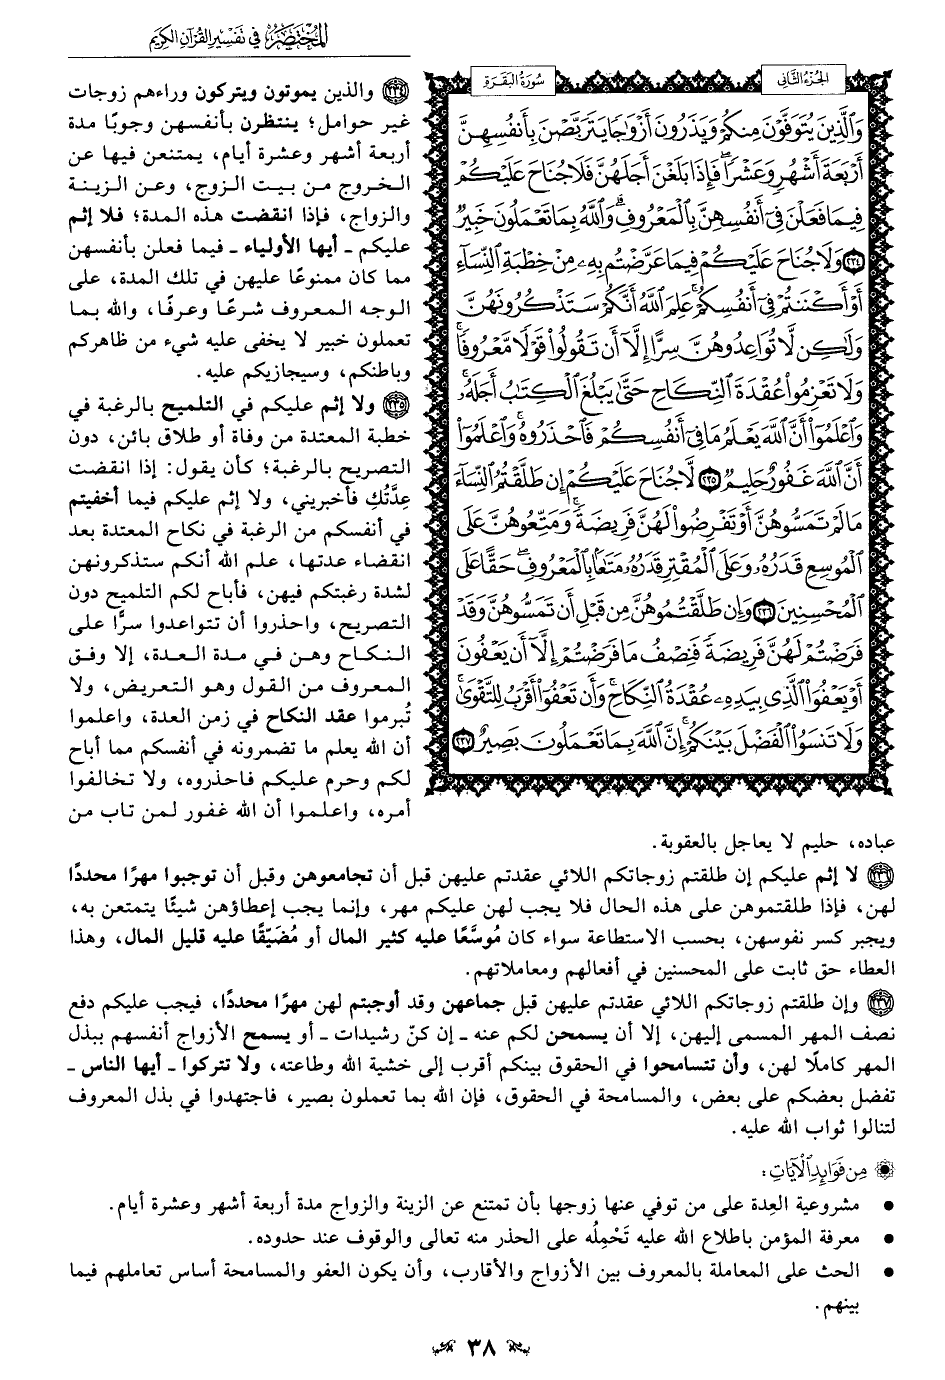 المختصر في تفسير القرآن الكريم
الجزء الثاني
سورة البقرة
وَٱلَّذِينَ يُتَوَفَّوْنَ مِنكُمْ وَيَذَرُونَ أَزْوَٰجًا يَتَرَبَّصْنَ بِأَنفُسِهِنَّ
أَرْبَعَةَ أَشْهُرٍ وَعَشْرًا ۖ فَإِذَا بَلَغْنَ أَجَلَهُنَّ فَلَا جُنَاحَ عَلَيْكُمْ
فِيمَا فَعَلْنَ فِىٓ أَنفُسِهِنَّ بِٱلْمَعْرُوفِ ۗ وَٱللَّهُ بِمَا تَعْمَلُونَ خَبِيرٌ
٢٣٤ وَلَا جُنَاحَ عَلَيْكُمْ فِيمَا عَرَّضْتُم بِهِۦ مِنْ خِطْبَةِ ٱلنِّسَآءِ
أَوْ أَكْنَنتُمْ فِىٓ أَنفُسِكُمْ ۚ عَلِمَ ٱللَّهُ أَنَّكُمْ سَتَذْكُرُونَهُنَّ
وَلَٰكِن لَّا تُوَاعِدُوهُنَّ سِرًّا إِلَّآ أَن تَقُولُوا۟ قَوْلًا مَّعْرُوفًا ۚ
وَلَا تَعْزِمُوا۟ عُقْدَةَ ٱلنِّكَاحِ حَتَّىٰ يَبْلُغَ ٱلْكِتَٰبُ أَجَلَهُۥ ۚ
وَٱعْلَمُوٓا۟ أَنَّ ٱللَّهَ يَعْلَمُ مَا فِىٓ أَنفُسِكُمْ فَٱحْذَرُوهُ ۚ وَٱعْلَمُوٓا۟
أَنَّ ٱللَّهَ غَفُورٌ حَلِيمٌ ٢٣٥ لَّا جُنَاحَ عَلَيْكُمْ إِن طَلَّقْتُمُ ٱلنِّسَآءَ
مَا لَمْ تَمَسُّوهُنَّ أَوْ تَفْرِضُوا۟ لَهُنَّ فَرِيضَةً ۚ وَمَتِّعُوهُنَّ عَلَى
ٱلْمُوسِعِ قَدَرُهُۥ وَعَلَى ٱلْمُقْتِرِ قَدَرُهُۥ مَتَٰعًۢا بِٱلْمَعْرُوفِ ۖ حَقًّا عَلَى
ٱلْمُحْسِنِينَ ٢٣٦ وَإِن طَلَّقْتُمُوهُنَّ مِن قَبْلِ أَن تَمَسُّوهُنَّ وَقَدْ
فَرَضْتُمْ لَهُنَّ فَرِيضَةً فَنِصْفُ مَا فَرَضْتُمْ إِلَّآ أَن يَعْفُونَ
أَوْ يَعْفُوَا۟ ٱلَّذِى بِيَدِهِۦ عُقْدَةُ ٱلنِّكَاحِ ۚ وَأَن تَعْفُوٓا۟ أَقْرَبُ لِلتَّقْوَىٰ ۚ
وَلَا تَنسَوُا۟ ٱلْفَضْلَ بَيْنَكُمْ ۚ إِنَّ ٱللَّهَ بِمَا تَعْمَلُونَ بَصِيرٌ ٢٣٧
٢٣٤ والذين يموتون ويتركون وراءهم زوجات
غير حوامل؛ ينتظرن بأنفسهن وجوبًا مدة
أربعة أشهر وعشرة أيام، يمتنعن فيها عن
الخروج من بيت الزوج، وعن الزينة
والزواج، فإذا انقضت هذه المدة؛ فلا إثم
عليكم - أيها الأولياء - فيما فعلن بأنفسهن
مما كان ممنوعًا عليهن في تلك المدة، على
الوجه المعروف شرعًا وعرفًا، والله بما
تعملون خبير لا يخفى عليه شيء من ظاهركم
وباطنكم، وسيجازيكم عليه.
٢٣٥ ولا إثم عليكم في التلميح بالرغبة في
خطبة المعتدة من وفاة أو طلاق بائن، دون
التصريح بالرغبة؛ كأن يقول: إذا انقضت
عِدَّتُكِ فأخبريني، ولا إثم عليكم فيما أخفيتم
في أنفسكم من الرغبة في نكاح المعتدة بعد
انقضاء عدتها، علم الله أنكم ستذكرونهن
لشدة رغبتكم فيهن، فأباح لكم التلميح دون
التصريح، واحذروا أن تتواعدوا سرًّا على
النكاح وهن في مدة العدة، إلا وفق
المعروف من القول وهو التعريض، ولا
تُبرموا عقد النكاح في زمن العدة، واعلموا
أن الله يعلم ما تضمرونه في أنفسكم مما أباح
لكم وحرم عليكم فاحذروه، ولا تخالفوا
أمره، واعلموا أن الله غفور لمن تاب من
عباده، حليم لا يعاجل بالعقوبة.
٢٣٦ لا إثم عليكم إن طلقتم زوجاتكم اللائي عقدتم عليهن قبل أن تجامعوهن وقبل أن توجبوا مهرًا محددًا
لهن، فإذا طلقتموهن على هذه الحال فلا يجب لهن عليكم مهر، وإنما يجب إعطاؤهن شيئًا يتمتعن به،
ويجبر كسر نفوسهن، بحسب الاستطاعة سواء كان مُوسَّعًا عليه كثير المال أو مُضَيَّقًا عليه قليل المال، وهذا
العطاء حق ثابت على المحسنين في أفعالهم ومعاملاتهم.
٢٣٧ وإن طلقتم زوجاتكم اللائي عقدتم عليهن قبل جماعهن وقد أوجبتم لهن مهرًا محددًا، فيجب عليكم دفع
نصف المهر المسمى إليهن، إلا أن يسمحن لكم عنه - إن كنّ رشيدات - أو يسمح الأزواج أنفسهم ببذل
المهر كاملًا لهن، وأن تتسامحوا في الحقوق بينكم أقرب إلى خشية الله وطاعته، ولا تتركوا - أيها الناس -
تفضل بعضكم على بعض، والمسامحة في الحقوق، فإن الله بما تعملون بصير، فاجتهدوا في بذل المعروف
لتنالوا ثواب الله عليه.
من فوائد الآيات:
● مشروعية العِدة على من توفي عنها زوجها بأن تمتنع عن الزينة والزواج مدة أربعة أشهر وعشرة أيام.
● معرفة المؤمن باطلاع الله عليه تَحْمِلُه على الحذر منه تعالى والوقوف عند حدوده.
● الحث على المعاملة بالمعروف بين الأزواج والأقارب، وأن يكون العفو والمسامحة أساس تعاملهم فيما
بينهم.
٣٨